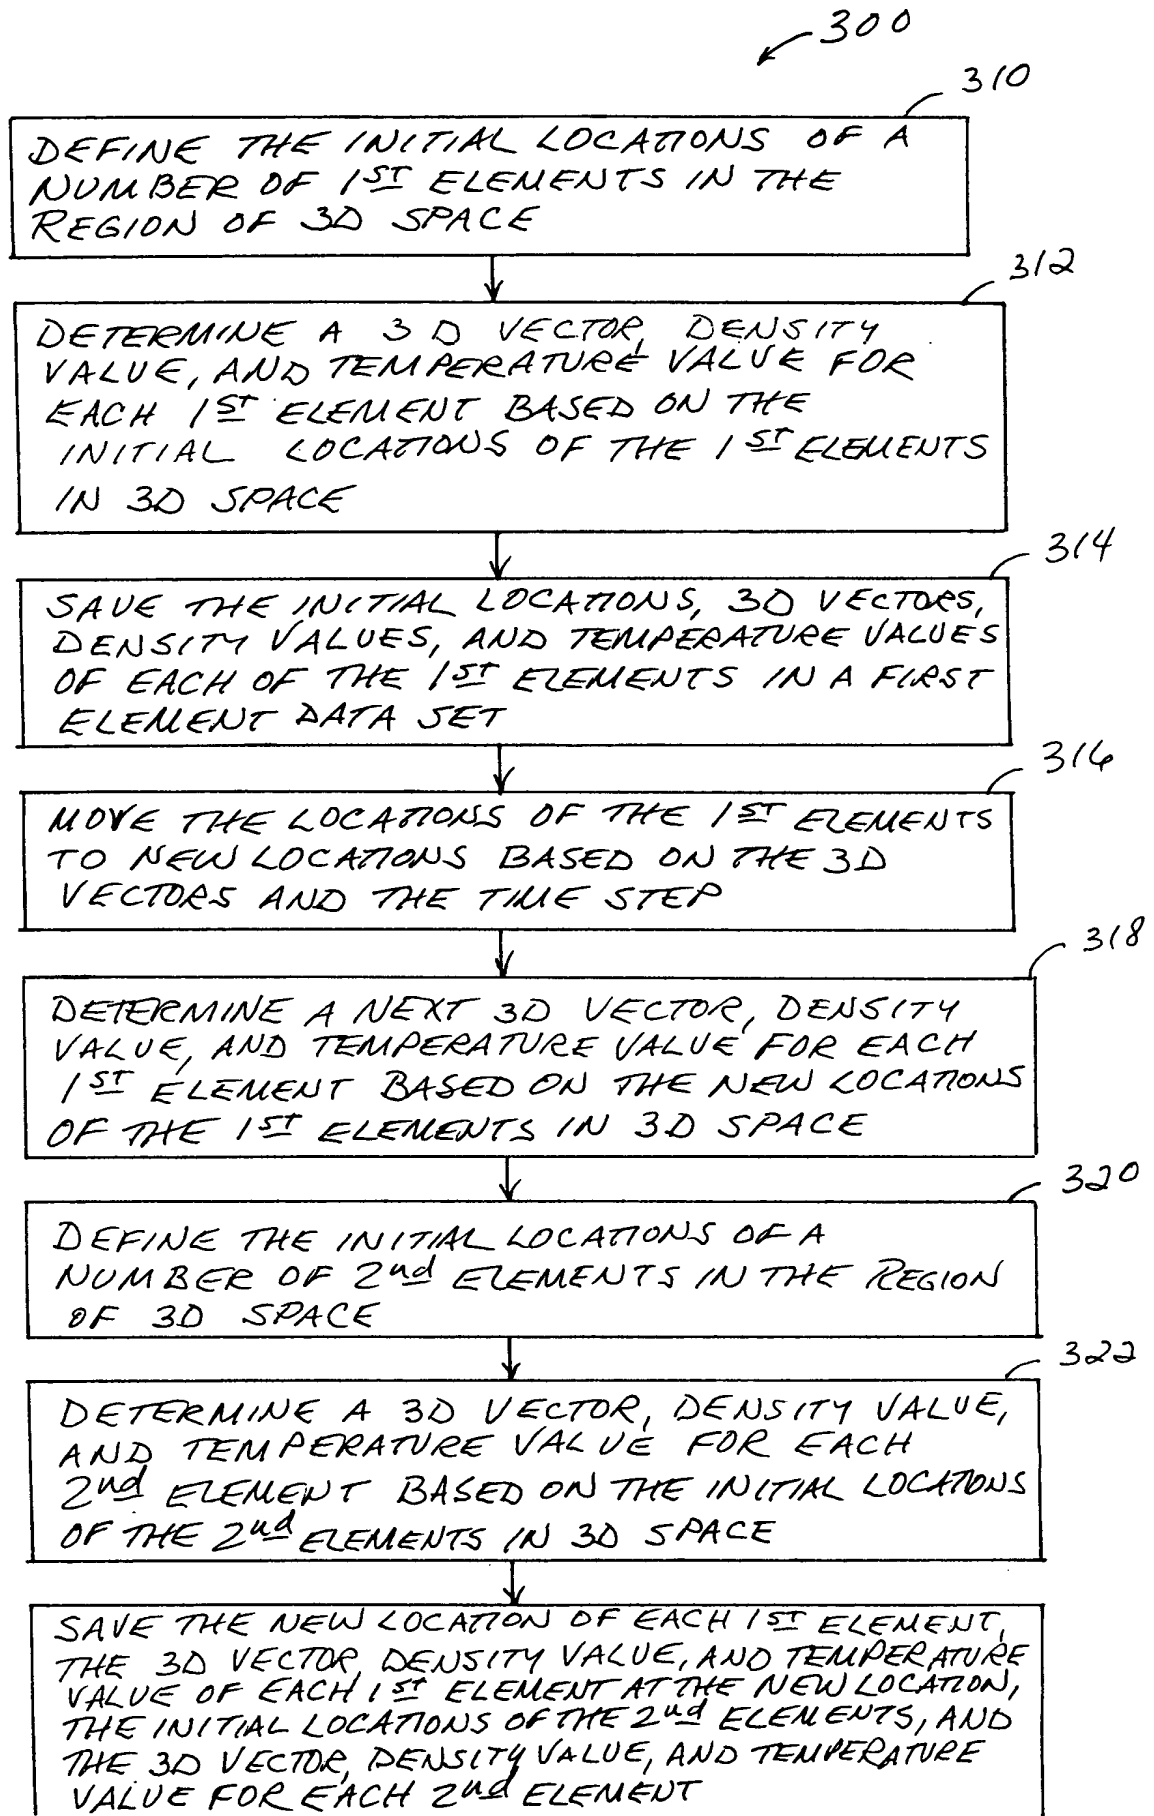 300
310
DEFINE THE INITIAL LOCATIONS OF A
NUMBER OF 1ST ELEMENTS IN THE
REGION OF 3D SPACE
312
DETERMINE A 3D VECTOR, DENSITY
VALUE, AND TEMPERATURE VALUE FOR
EACH 1ST ELEMENT BASED ON THE
INITIAL LOCATIONS OF THE 1ST ELEMENTS
IN 3D SPACE
314
SAVE THE INITIAL LOCATIONS, 3D VECTORS,
DENSITY VALUES, AND TEMPERATURE VALUES
OF EACH OF THE 1ST ELEMENTS IN A FIRST
ELEMENT DATA SET
316
MOVE THE LOCATIONS OF THE 1ST ELEMENTS
TO NEW LOCATIONS BASED ON THE 3D
VECTORS AND THE TIME STEP
318
DETERMINE A NEXT 3D VECTOR, DENSITY
VALUE, AND TEMPERATURE VALUE FOR EACH
1ST ELEMENT BASED ON THE NEW LOCATIONS
OF THE 1ST ELEMENTS IN 3D SPACE
320
DEFINE THE INITIAL LOCATIONS OF A
NUMBER OF 2nd ELEMENTS IN THE REGION
OF 3D SPACE
322
DETERMINE A 3D VECTOR, DENSITY VALUE,
AND TEMPERATURE VALUE FOR EACH
2nd ELEMENT BASED ON THE INITIAL LOCATIONS
OF THE 2nd ELEMENTS IN 3D SPACE
SAVE THE NEW LOCATION OF EACH 1ST ELEMENT,
THE 3D VECTOR, DENSITY VALUE, AND TEMPERATURE
VALUE OF EACH 1ST ELEMENT AT THE NEW LOCATION,
THE INITIAL LOCATIONS OF THE 2nd ELEMENTS, AND
THE 3D VECTOR, DENSITY VALUE, AND TEMPERATURE
VALUE FOR EACH 2nd ELEMENT